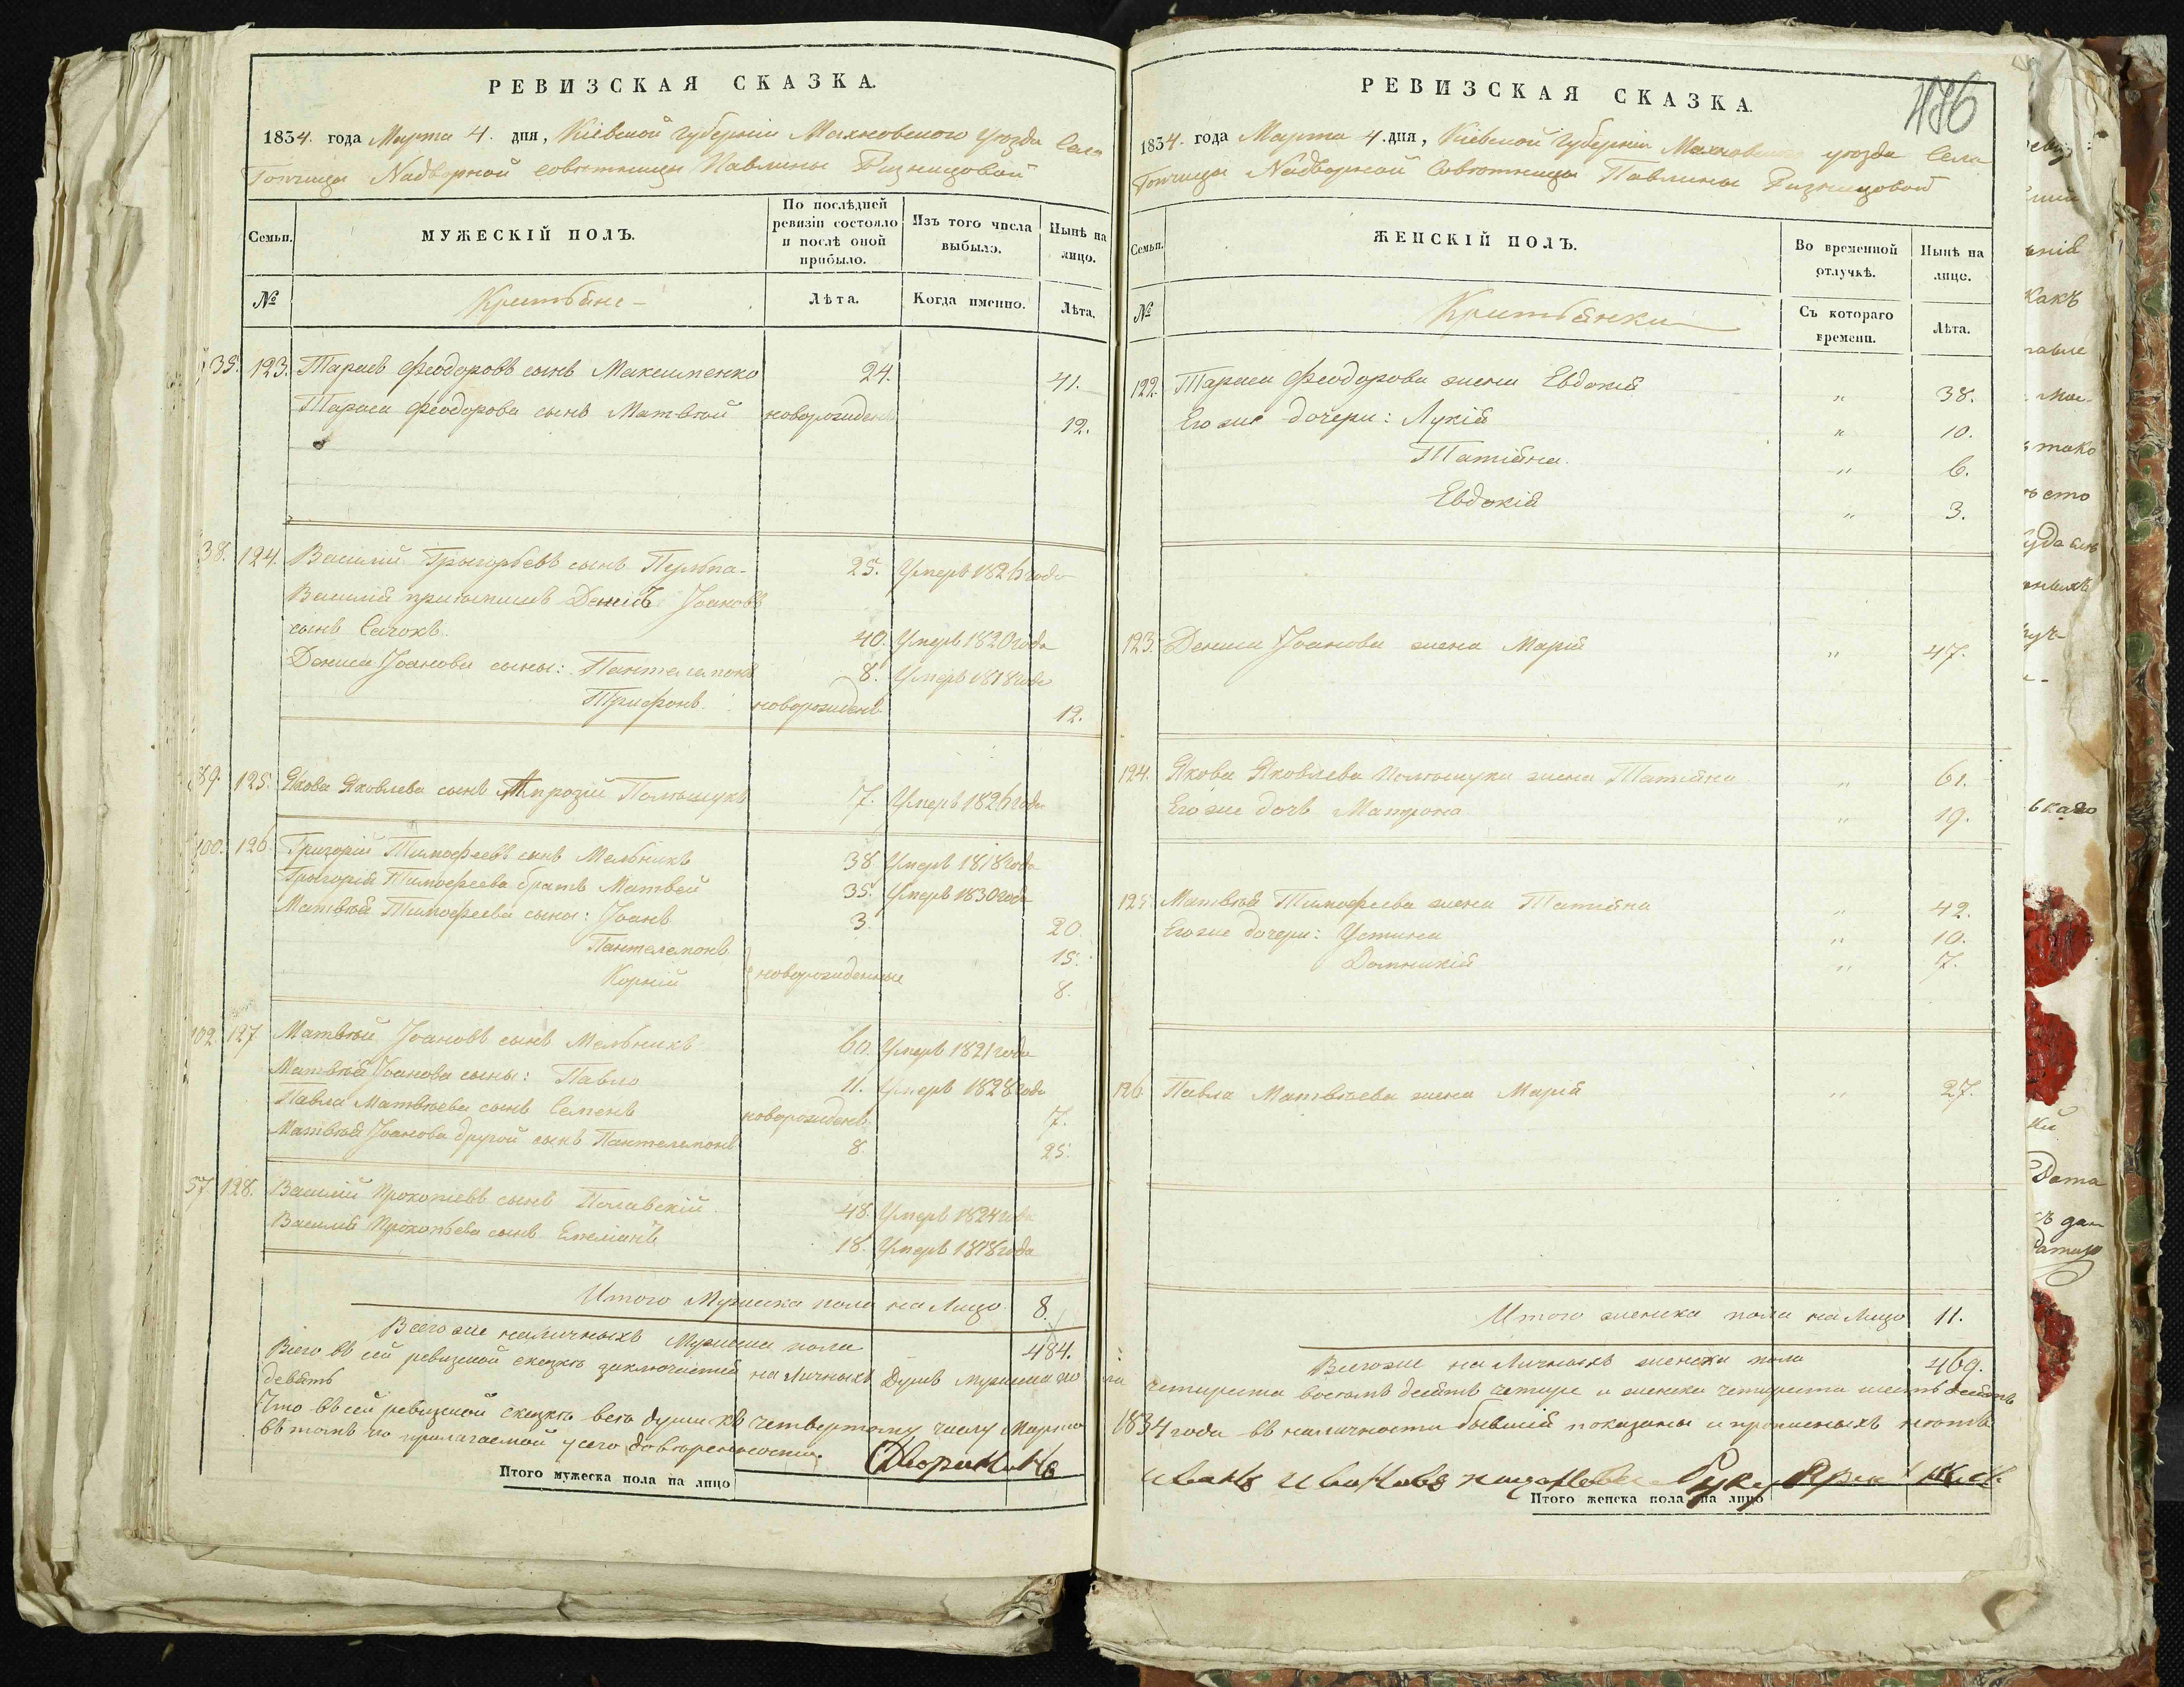 РЕВИЗСКАЯ СКАЗКА.
1834. года Марта 4. дня, Кіевской Губерніи Махновскаго уѣзда Села
Топчищь Надворной совѣтницы Павлины Ризницовой
Семьи.
МУЖЕСКІЙ ПОЛЪ.
По послѣдней ревизіи состояло и послѣ оной прибыло.
Изъ того числа выбыло.
Нынѣ на лицо.
№
Крестьяне
Лѣта.
Когда именно.
Лѣта.
35. 123. Тарасъ Феодоровъ сынъ Максименко 24. 41.
Тараса Феодорова сынъ Матвѣй новорожденъ 12.
38. 124. Василій Григорьевъ сынъ 25. Умеръ 1826 года
Василія Денисъ Іоановъ
сынъ Сачокъ. 40. Умеръ 1820 года
Дениса Іоанова сыны: Пантелемонъ 8. Умеръ 1818 года
Трифонъ. новорожденъ 12.
89. 125. Якова Яковлева сынъ Полѣщукъ 7. Умеръ 1826 года
100. 126. Григорій Тимофеевъ сынъ Мельникъ 38. Умеръ 1818 года
Григорія Тимофеева братъ Матвей 35. Умеръ 1830 года
Матвѣя Тимофеева сыны: Іоанъ 3. 20.
Пантелемонъ 15.
новорожденные
Корній 8.
102. 127. Матвѣй Іоановъ сынъ Мельникъ 60. Умеръ 1821 года
Матвѣя Іоанова сыны: Павло 11. Умеръ 1828 года
Павла Матвѣева сынъ Семенъ новорожденъ 7.
Матвѣя Іоанова другой сынъ Пантелемонъ 8. 25.
57. 128. Василій Прокопіевъ сынъ 48. Умеръ 1824 года
Василія Прокопьева сынъ Емеліянъ 18. Умеръ 1818 года
Итого Мужеска пола на Лицо 8.
Всего же наличныхъ Мужеска пола 484.
Всего въ сей ревизской сказкѣ заключается на Личныхъ Душъ мужеска по
девять
Что въ сей ревизской сказкѣ всѣ души къ четвертому числу Марта
въ томъ по прилагаемой у сего довѣренности. Дворянинъ
Итого мужеска пола на лицо
РЕВИЗСКАЯ СКАЗКА.
1834. года Марта 4. дня, Кіевской Губерніи Махновскаго уѣзда Села
Топчищь Надворной Совѣтницы Павлины Ризницовой
Семьи.
ЖЕНСКІЙ ПОЛЪ.
Во временной отлучкѣ.
Нынѣ на лице.
№
Крестьянки
Съ котораго времени.
Лѣта.
122. Тараса Феодорова жена Евдокія " 38.
Его же дочери: Лукія " 10.
Татіяна. " 6.
Евдокія " 3.
123. Дениса Іоанова жена Марія " 47.
124. Якова Яковлева Полѣщука жена Татіяна " 61.
Его же дочь Матрона " 19.
125. Матвѣя Тимофеева жена Татіяна " 42.
Его же дочери: Устина " 10.
Домникія " 7.
126. Павла Матвѣева жена Марія " 27.
Итого женска пола на Лицо 11.
Всего же на Личныхъ женска пола 469.
ла четыреста восемь десятъ четыре и женска четыреста шесть десятъ
1834 года въ наличности бывшія показаны и прописныхъ нѣтъ
Итого женска пола на лицо